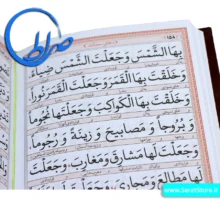 صراط
۱۵۸
بِهَا الشَّمْسَ وَجَعَلْتَ الشَّمْسَ ضِيَاءً
وَخَلَقْتَ بِهَا الْقَمَرَ وَجَعَلْتَ الْقَمَرَ نُوراً
وَخَلَقْتَ بِهَا الْكَوَاكِبَ وَجَعَلْتَهَا نُجُوماً
وَ بُرُوجاً وَ مَصَابِيحَ وَ زِينَةً وَ رُجُوماً،
وَجَعَلْتَ لَهَا مَشَارِقَ وَمَغَارِبَ، وَجَعَلْتَ
لَهَا مَطَالِعَ وَمَجَارِيَ
www.SeratStore.ir